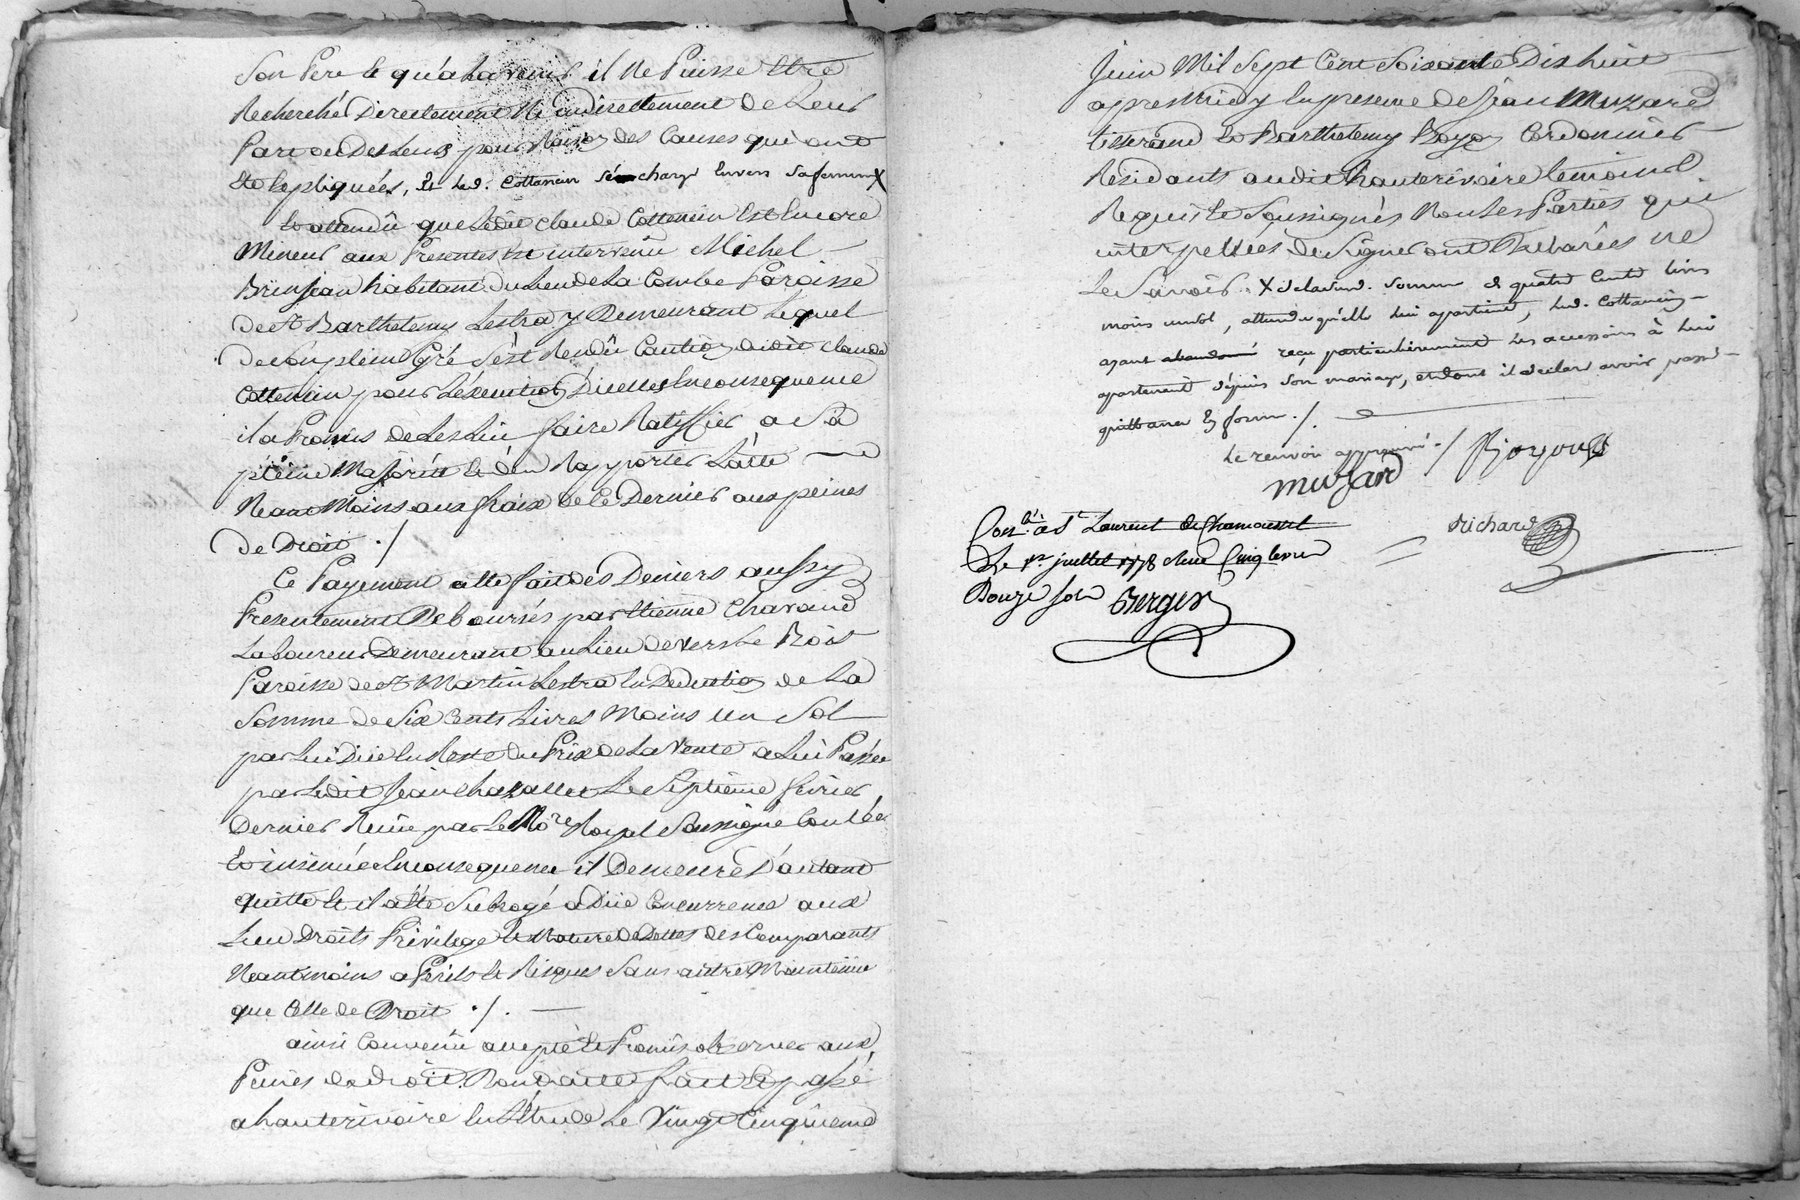 Son Pere et qu'a Lavenir il Ne Puisse Etre
Recherché Directement Ni indirectement de Leur
Part ou Des Leurs pour Raison des Causes qui ont
Eté Expliquées, Et led. Cottancin sé charge Envers sa femme X
Et attendû que Ledit Claude Cottencin Est Encore
Mineur aux Presentes Est intervenû Michel
Brunjean habitant du Lieu de La Combe Paroisse
de St Barthelemy Lestra y Demeurant Lequel
de son plein Gré s'est Rendû Caution dudit Claude
Cottencin pour L'éxecution D'icelles En consequence
il a Promis de Les Lui faire Ratiffier a Sa
pleine Majorité et d'en Rapporter L'acte
Neant Moins aux fraix de Ce Dernier aux peines
de Droit ./
Ce Payement a été fait des Deniers aussy
Presentement Deboursés par Etienne Chavand
Laboureur Demeurant au Lieu de vers Le Bois
Paroisse de St Martin Lestra En Deduction de La
Somme de Six Cents Livres Moins un Sol
par Lui Dûe En Reste du Prix de La Vente a Lui Passée
par Ledit Jean Chavallet Le Septieme fevrier
Dernier Reçüe par Le No.re Royal Soussigné Contlée
Et insinuée En consequence il Demeure D'autant
quitte Et il a Eté Subrogé a Dûe Concurrence aux
Lieu Droits Privilege Et Nature de Dettes des Comparants
Neantmoins a Perils Et Risques Sans autre Maintenüe
que Celle de Droit ./.
ainsi Convenû accepté Et Promis observer aux
Peines de droit. Dont acte fait Et passé
a hauterivoire En L'Etude Le Vingt Cinquieme
Juin Mil Sept Cent Soixante Dix huit
apres Midy En presence de Jean Muzard
tisserand Et Barthelemy Boyou Cordonnier
Residants audit hauterivoire temoins
Requis Et Soussignés Non Les Parties qui
interpellées de Signer ont Declarées ne
Le Savoir. X de laditte Somme de quatre Cents livres
moins un sol, attendu qu'elle lui apartient, led. Cottancin
ayant abandonné reçu particulierement les accessoirs à lui
apartenant dépuis son mariage, et dont il declare avoir passé
quittance En forme ./.
Le renvoi approuvé ./
Muzard
Bjoyou
Richard
Con.lé à St Laurent de Chamousset
Le 1er juillet 1778 Reçu Cinq livres
Douze sols Berger